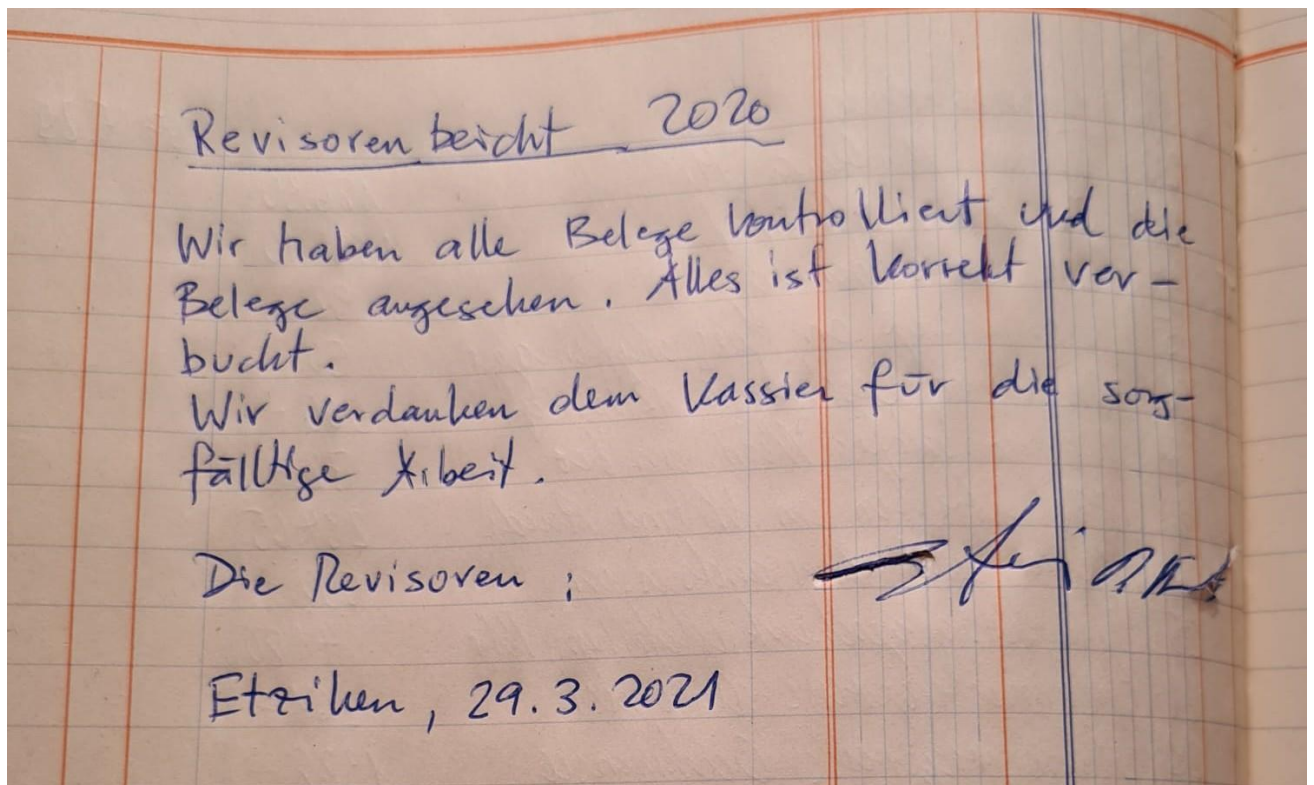 Revisorenbericht 2020
Wir haben alle Belege kontrolliert und die
Belege angesehen. Alles ist korrekt ver-
bucht.
Wir verdanken dem Kassier für die sorg-
fälltige Arbeit.
Die Revisoren :
Etziken, 29.3.2021